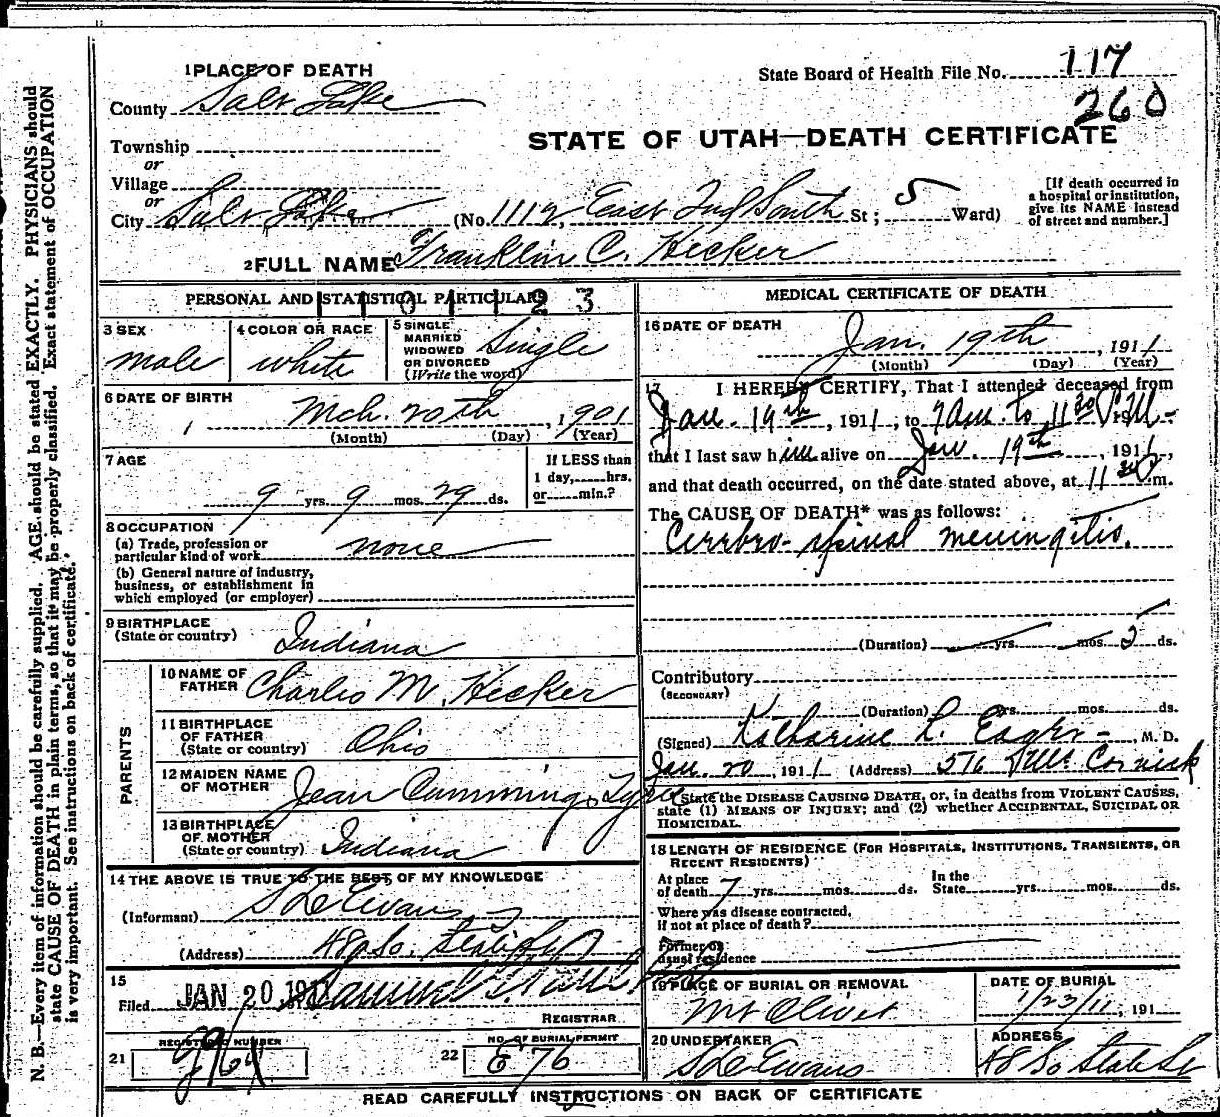 1 PLACE OF DEATH
County Salt Lake
State Board of Health File No. 117
260
STATE OF UTAH—DEATH CERTIFICATE
Township
or
Village
or
City Salt Lake (No. 1112, East 2nd South St; 5 Ward)
[If death occurred in
a hospital or institution,
give its NAME instead
of street and number.]
2 FULL NAME Franklin C. Hecker
PERSONAL AND STATISTICAL PARTICULARS
3 SEX
male
4 COLOR OR RACE
white
5 SINGLE
MARRIED
WIDOWED
OR DIVORCED
(Write the word)
Single
6 DATE OF BIRTH
Mch. 20th, 1901
(Month) (Day) (Year)
7 AGE
9 yrs. 9 mos. 29 ds.
If LESS than
1 day,......hrs.
or......min.?
8 OCCUPATION
(a) Trade, profession or
particular kind of work none
(b) General nature of industry,
business, or establishment in
which employed (or employer)
9 BIRTHPLACE
(State or country) Indiana
PARENTS
10 NAME OF
FATHER Charles M. Hecker
11 BIRTHPLACE
OF FATHER
(State or country) Ohio
12 MAIDEN NAME
OF MOTHER Jean Cummings
13 BIRTHPLACE
OF MOTHER
(State or country) Indiana
14 THE ABOVE IS TRUE TO THE BEST OF MY KNOWLEDGE
(Informant) S D Evans
(Address) 48 So. State St
15
Filed JAN 20 1911
REGISTRAR
21 REGISTERED NUMBER
22 NO. OF BURIAL PERMIT
E 76
MEDICAL CERTIFICATE OF DEATH
16 DATE OF DEATH
Jan. 19th, 1911
(Month) (Day) (Year)
17 I HEREBY CERTIFY, That I attended deceased from
Jan. 19th, 1911, to 7 am. to 11 30 P.M.
that I last saw him alive on Jan. 19th, 1911,
and that death occurred, on the date stated above, at 11 30 P m.
The CAUSE OF DEATH* was as follows:
Cerebro-spinal meningitis.
(Duration) yrs. mos. 2 ds.
Contributory
(SECONDARY)
(Duration) yrs. mos. ds.
(Signed) Katharine L. , M. D.
Jan. 20, 1911 (Address) 516 McCornick
*State the DISEASE CAUSING DEATH, or, in deaths from VIOLENT CAUSES,
state (1) MEANS OF INJURY; and (2) whether ACCIDENTAL, SUICIDAL OR
HOMICIDAL.
18 LENGTH OF RESIDENCE (FOR HOSPITALS, INSTITUTIONS, TRANSIENTS, OR
RECENT RESIDENTS)
At place
of death 7 yrs. mos. ds.
In the
State yrs. mos. ds.
Where was disease contracted,
if not at place of death?
Former or
usual residence
19 PLACE OF BURIAL OR REMOVAL
Mt Olivet
DATE OF BURIAL
1/23/11, 191
20 UNDERTAKER
S D Evans
ADDRESS
48 So State St
READ CAREFULLY INSTRUCTIONS ON BACK OF CERTIFICATE
N. B.—Every item of information should be carefully supplied. AGE should be stated EXACTLY. PHYSICIANS should
state CAUSE OF DEATH in plain terms, so that it may be properly classified. Exact statement of OCCUPATION
is very important. See instructions on back of certificate.